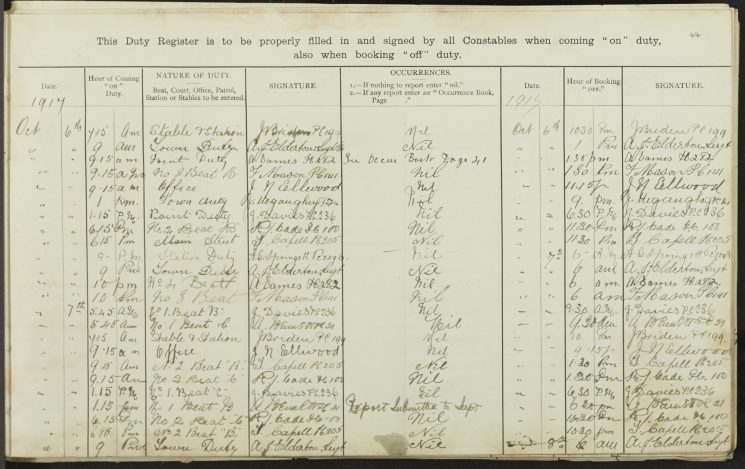 44
This Duty Register is to be properly filled in and signed by all Constables when coming "on" duty,
also when booking "off" duty.
Date. Hour of Coming "ON" Duty. NATURE OF DUTY. Beat, Court, Office, Patrol, Station or Stables to be entered. SIGNATURE. OCCURRENCES. 1.—If nothing to report enter "nil." 2.—If any report enter see "Occurrence Book, Page ." Date. Hour of Booking "OFF." SIGNATURE.
1917 1917
Oct 6th 7.15 Am Stable & Station J Briden PC 199 Nil Oct 6th 10.30 Pm J Briden PC 199
" " 9 am Town Duty A J Elderton Sergt Nil " " 1 Pm A J Elderton Sergt
" " 9.15 am Front Duty W Eames Pc 282 See Occur Book Page 41 " " 1.30 pm W Eames Pc 282
" " 9.15 a m No 3 Beat B T Mason Nil " " 1.30 Pm T Mason
" " 9-15 a m Office J N Ellwood Nil " " 11-15 J N Ellwood
" " 1 pm Town duty Nil " " 9 pm
" " 1.15 P.M. Point Duty J Davies Pc 236 Nil " " 6.30 P.M. J Davies Pc 236
" " 6.15 Pm No 2 Beat B R J Cade Pc 100 Nil " " 11.30 Pm R J Cade Pc 100
" " 6.15 Pm Main Street J Capell Pc 205 Nil " " 11.30 Pm J Capell Pc 205
" " 9 P.m Station Duty A E Springett Nil " 7th 6 A.m A E Springett
" " 9 Pm Town Duty A J Elderton Sergt Nil " " 6 am A J Elderton Sergt
" " 10 pm No 4 Beat W Eames Pc 282 Nil " " 6 am W Eames Pc 282
" " 10 pm No 3 Beat T Mason Nil " " 6 am T Mason
" 7th 5.45 A.M. No 1 Beat B J Davies Pc 236 Nil " " 9.30 A.M. J Davies Pc 236
" " 5.45 am No 1 Beat C Nil " " 9.30 am
" " Am Stable & Station J Briden PC 199 Nil " " 10 Pm J Briden PC 199
" " 9-15 a m Office J N Ellwood Nil " " 9.15 J N Ellwood
" " 9.15 am No 2 Beat "B" J Capell Pc 205 Nil " " 1.30 Pm J Capell Pc 205
" " 9.15 am No 2 Beat C R J Cade Pc 100 Nil " " 1.30 Pm R J Cade Pc 100
" " 1.15 P.M. No 1 Beat "C" J Davies Pc 236 Nil " " 6.30 P.M. J Davies Pc 236
" " 1.15 pm No 1 Beat B Report Submitted to Supt " " 6.30 pm
" " 6.15 Pm No 2 Beat C R J Cade Pc 100 Nil " " 10.30 Pm R J Cade Pc 100
" " 6.15 Pm No 2 Beat "B" J Capell Pc 205 Nil " " 10.30 pm J Capell Pc 205
" " 9 Pm Town Duty A J Elderton Sergt Nil " 8th 6 am A J Elderton Sergt